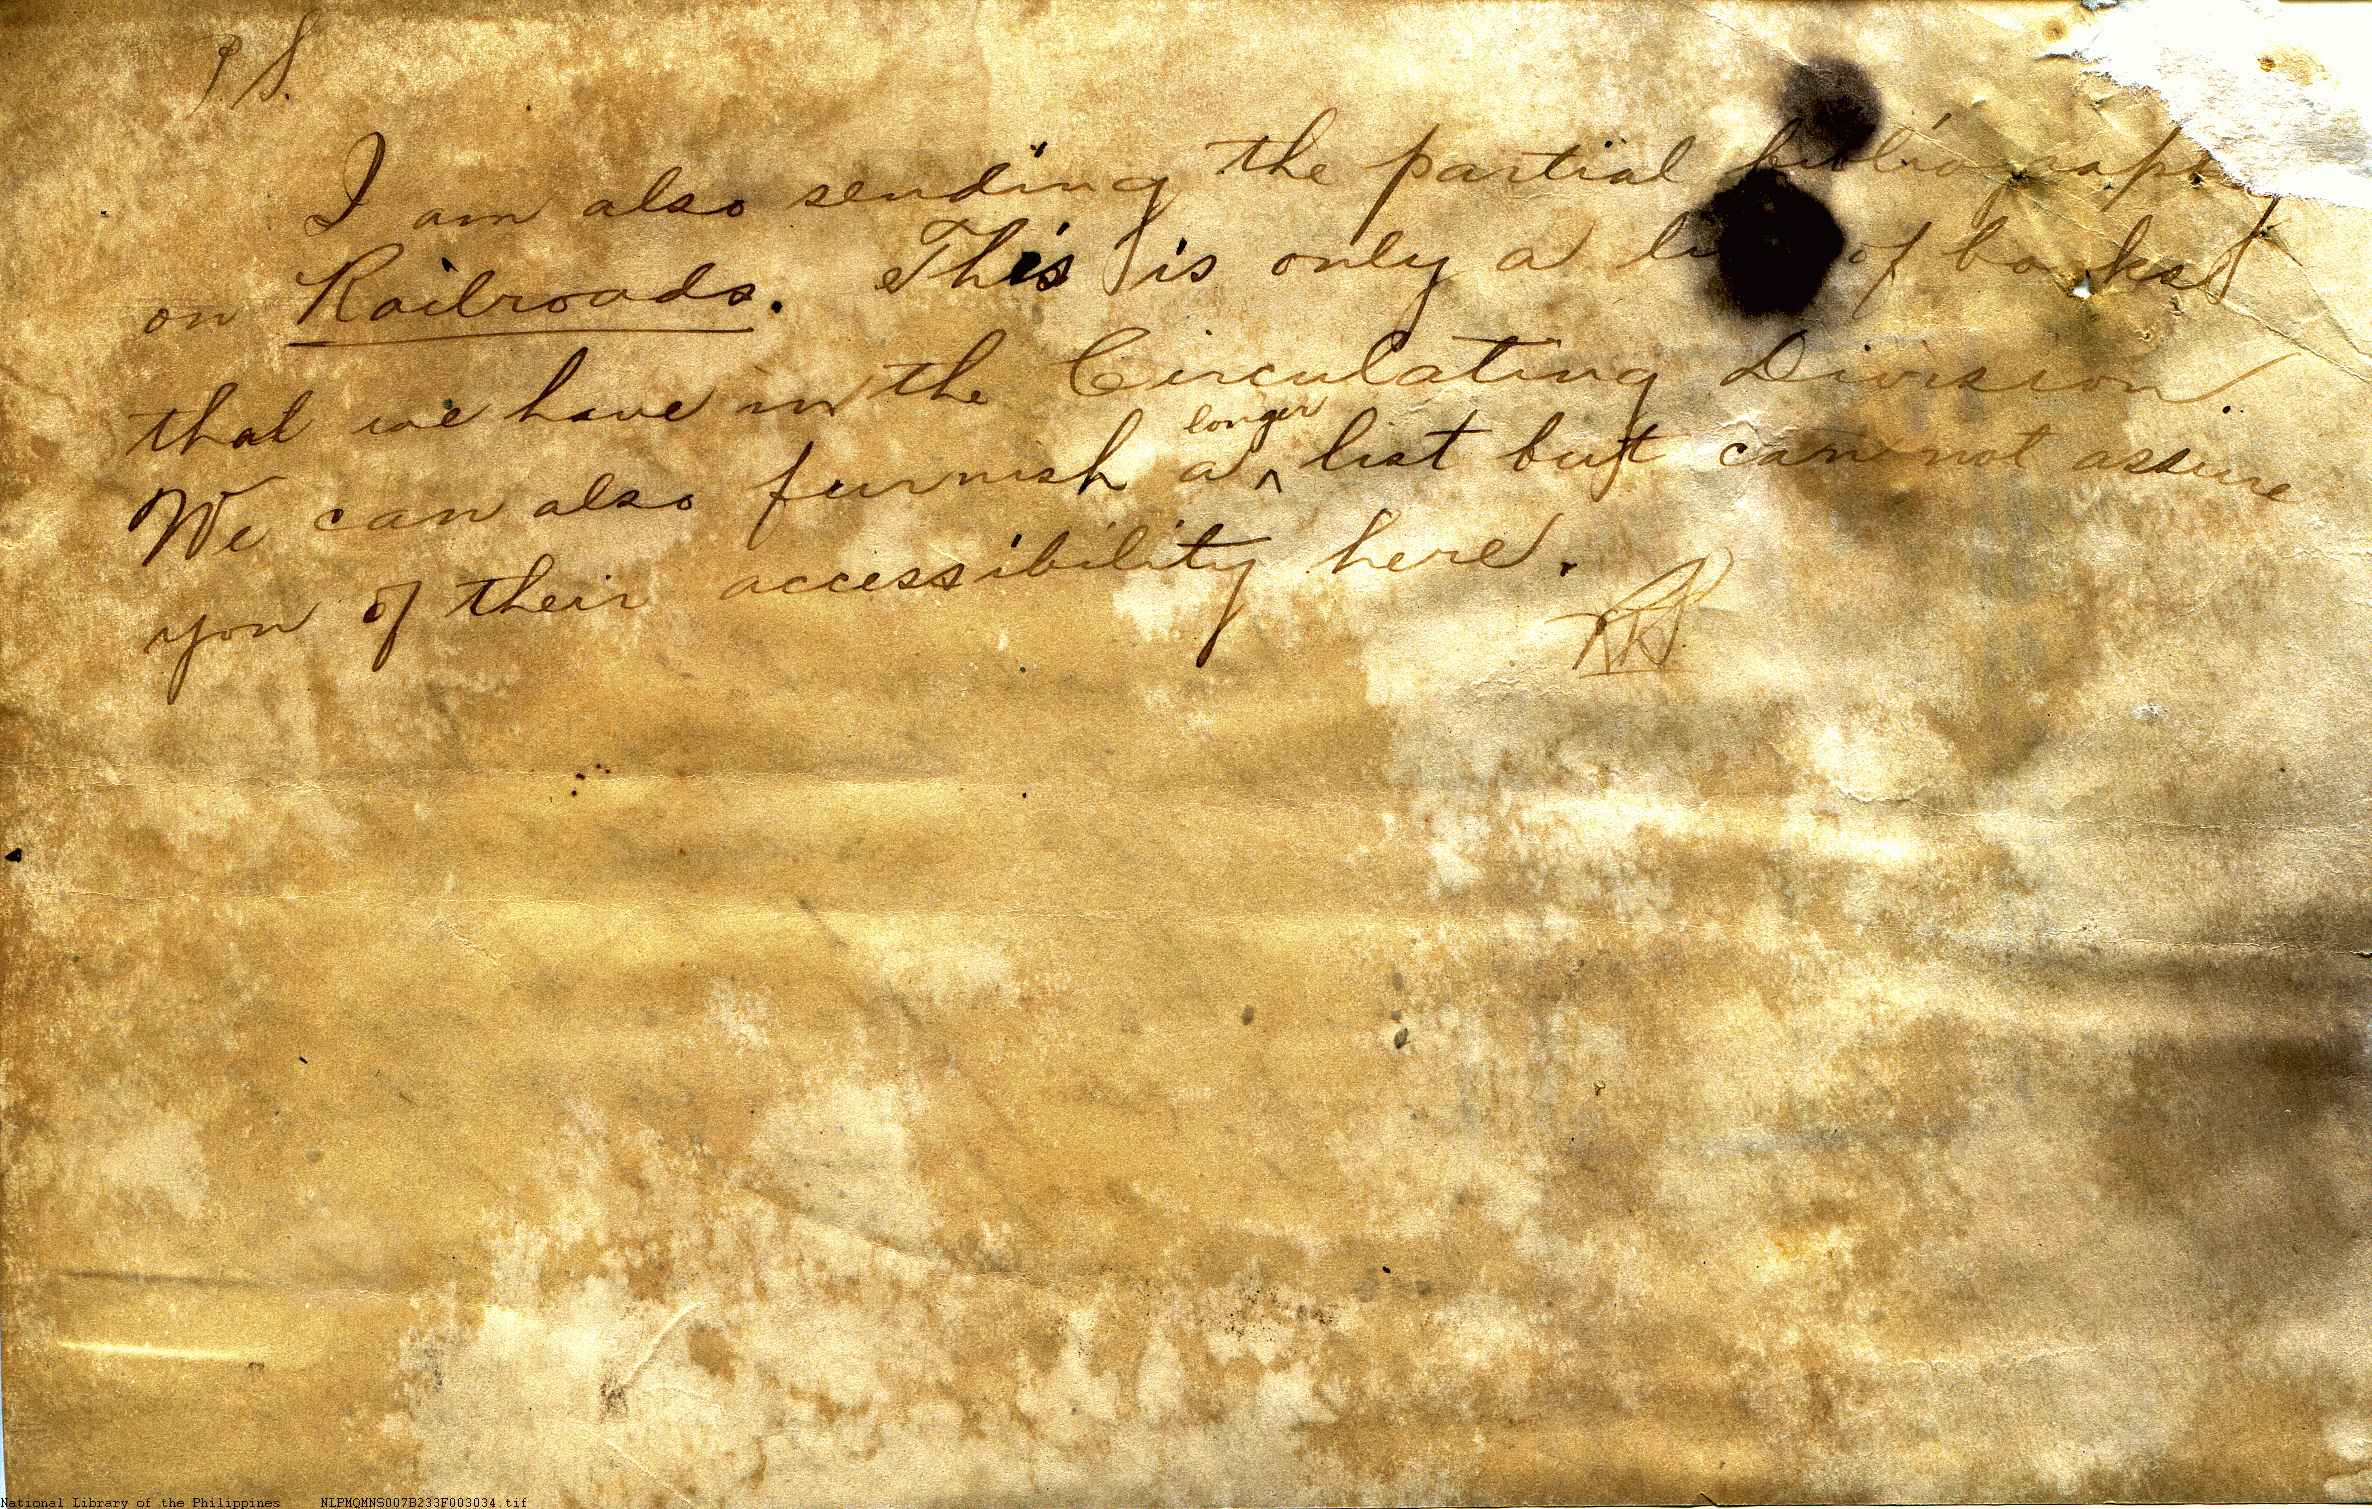 P.S.
I am also sending the partial bibliography
on Railroads. This is only a list of books
that we have in the Circulating Division.
We can also furnish a longer list but can not assure
you of their accessibility here.
National Library of the Philippines NLPMQMNS007B233F003034.tif